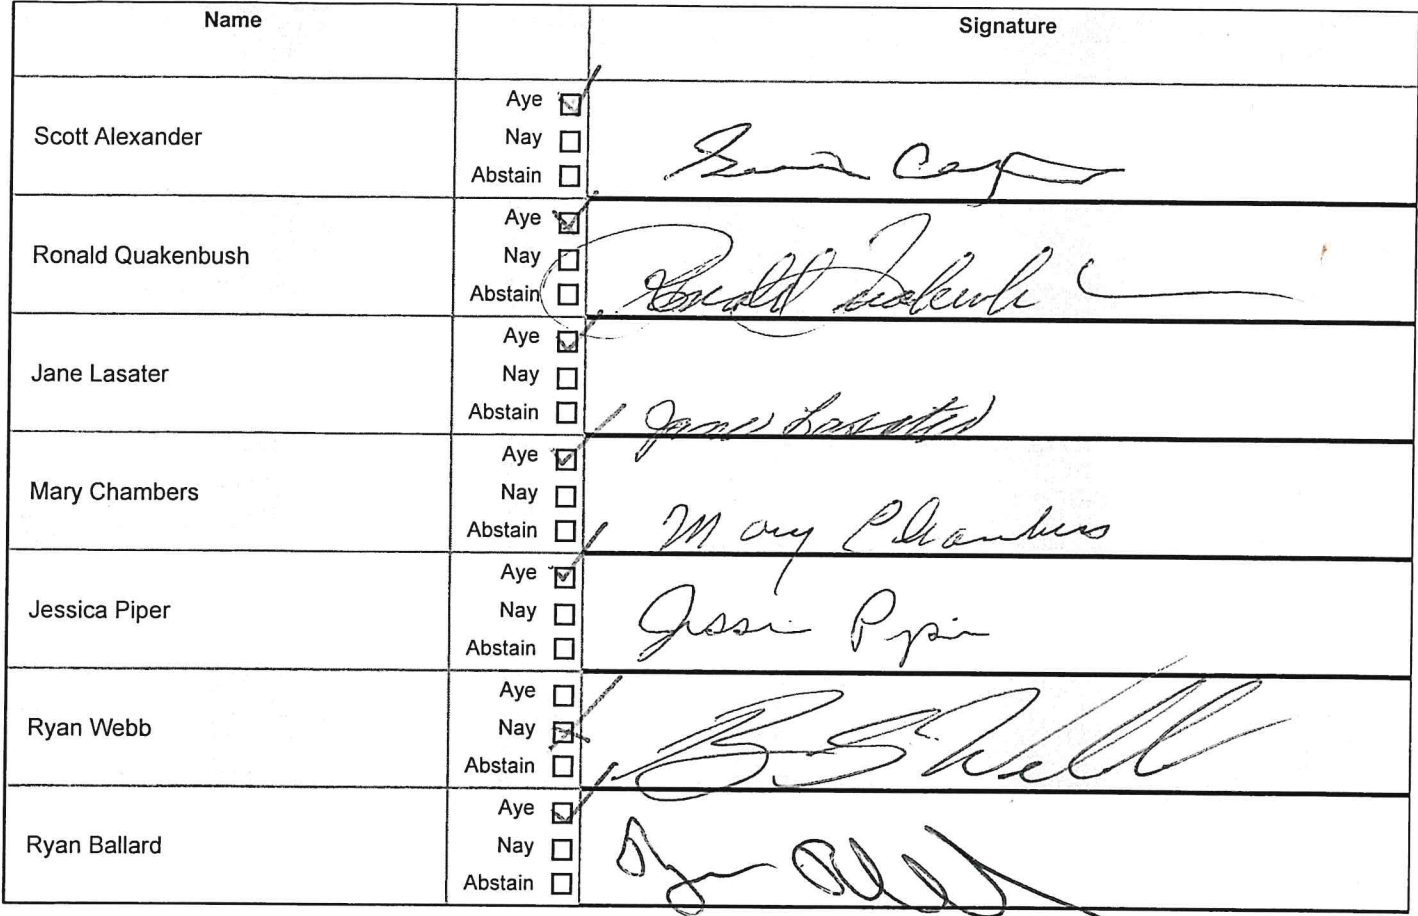 Name Signature
Scott Alexander
Aye
Nay
Abstain
Ronald Quakenbush
Aye
Nay
Abstain
Ronald Quakenbush
Jane Lasater
Aye
Nay
Abstain
Jane Lasater
Mary Chambers
Aye
Nay
Abstain
Mary Chambers
Jessica Piper
Aye
Nay
Abstain
Ryan Webb
Aye
Nay
Abstain
Webb
Ryan Ballard
Aye
Nay
Abstain
Ryan